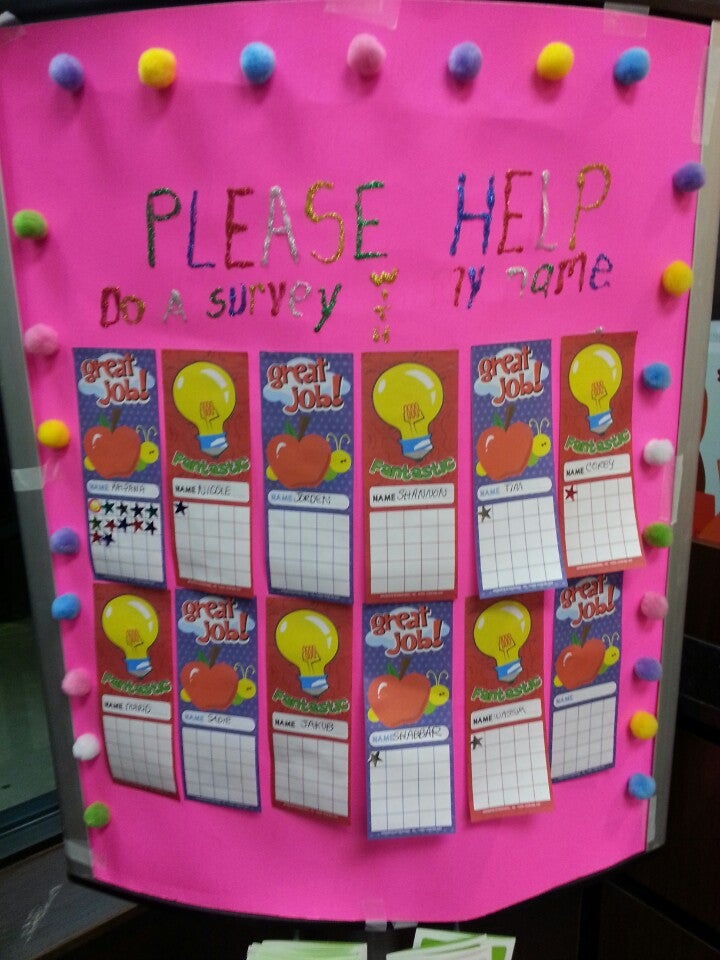 PLEASE HELP
Do A survey with my name
great job!
Fantastic
great job!
Fantastic
great job!
Fantastic
NAME
NAME NICOLE
NAME JORDEN
NAME SHANNON
NAME TIM
NAME COREY
Fantastic
great job!
Fantastic
great job!
Fantastic
great job!
NAME
NAME SADIE
NAME JAKUB
NAME SHABBAR
NAME WASIM
NAME